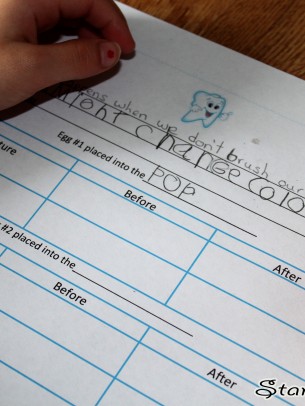 when we don't brush ou
might change colo
Egg #1 placed into the POP
ture Before After
#2 placed into the
Before After
Star